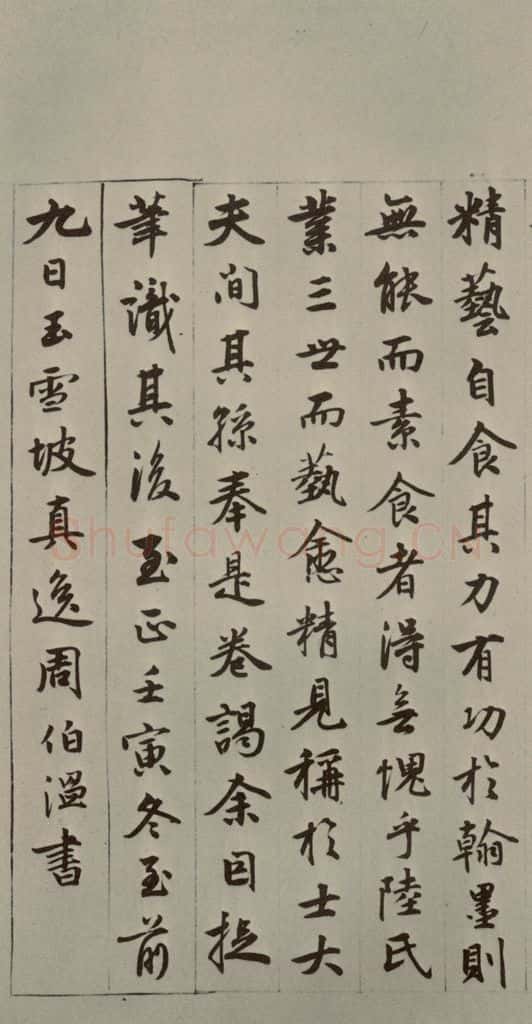 精藝自食其力有功於翰墨則
無能而素食者得無愧乎陸氏
業三世而藝愈精見稱於士大
夫間其孫奉是卷謁余因援
筆識其後至正壬寅冬至前
九日玉雪坡真逸周伯溫書
Shufawang.CN